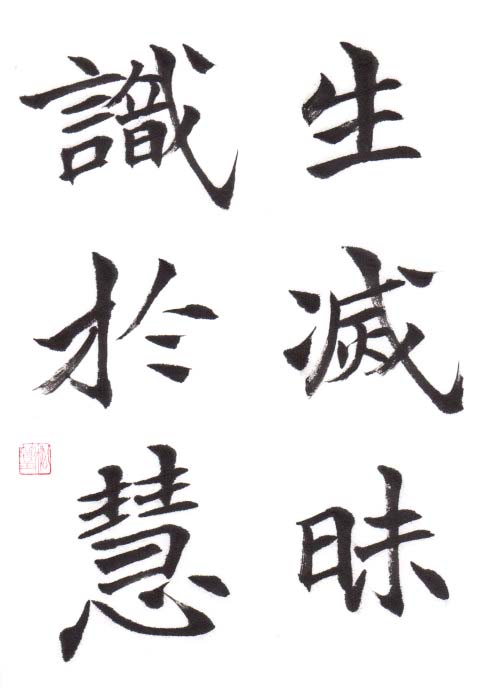 生滅昧
識於慧